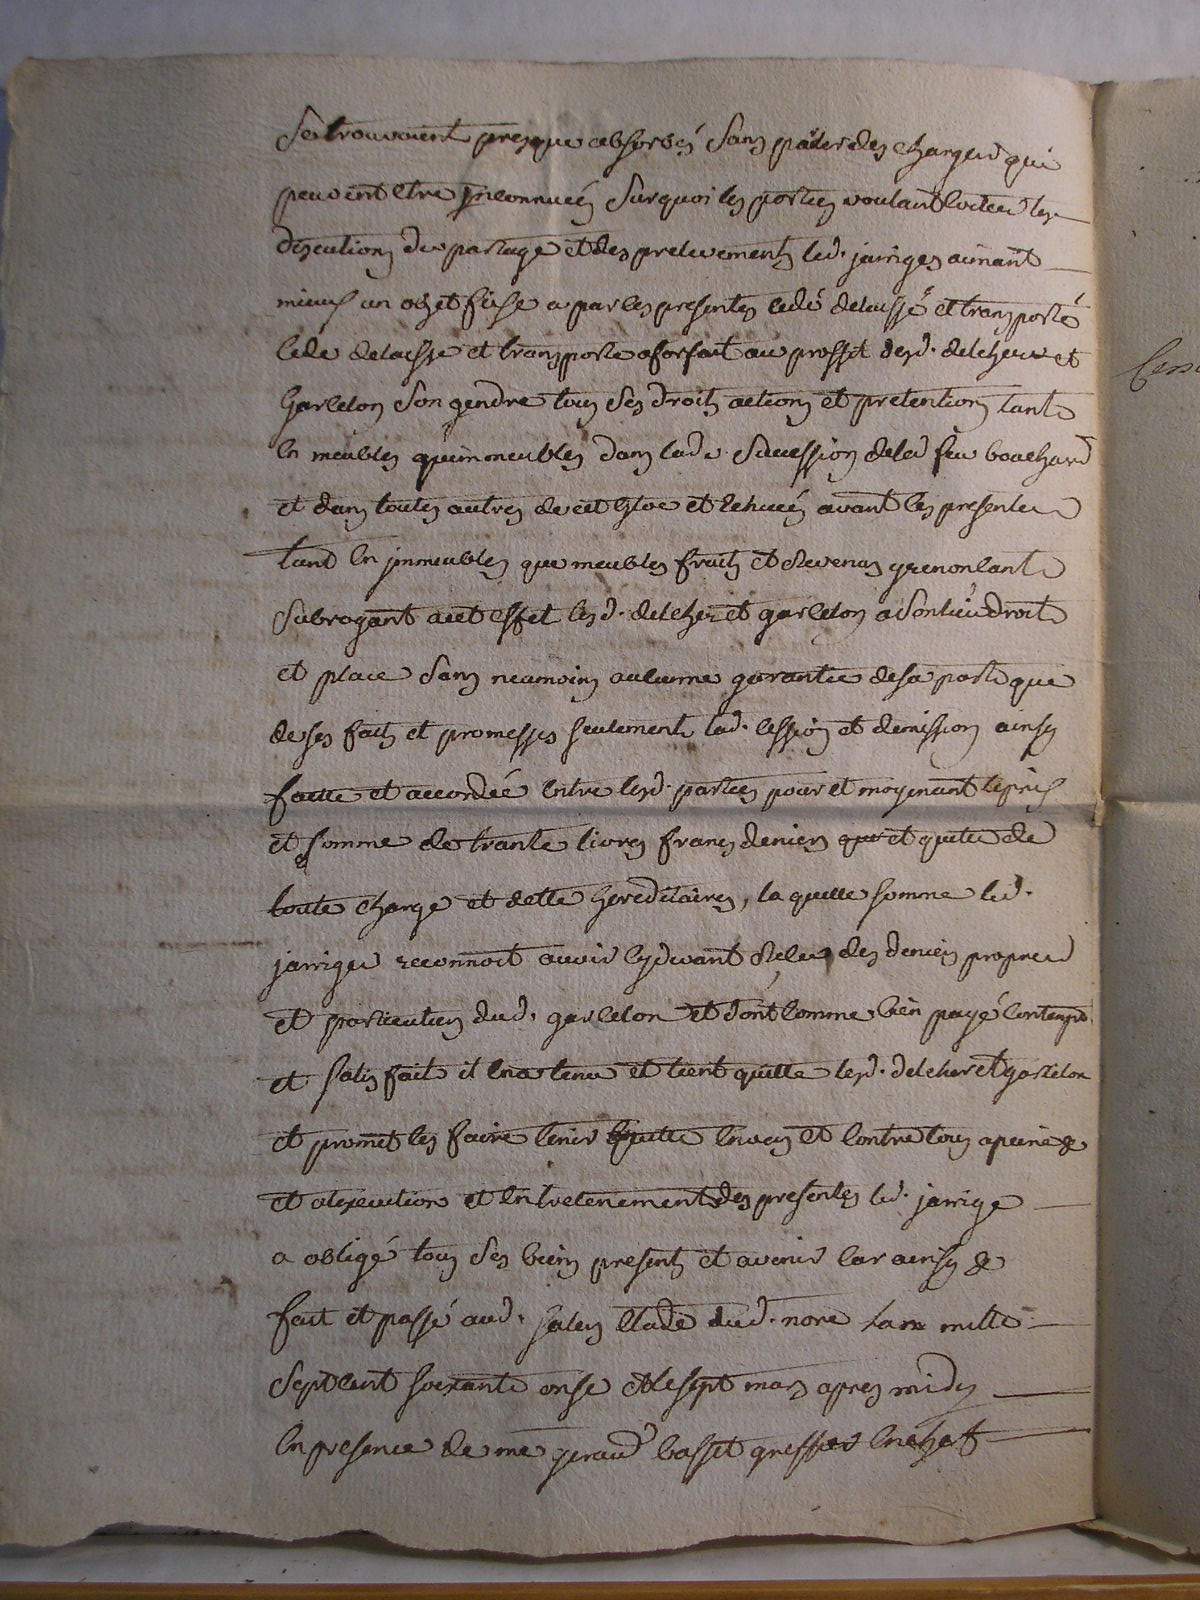 Se trouvoient presque absorbés Sans parler des charges qui
peuvent etre inconnues Surquoi les parties voulant eviter les
discutions du partage et des prelevements led. jarriges aimant
mieux un objet fixse a par les presentes cedé delaissé et transporté
cede delaisse et transporte a forfait au proffit desd. delcher et
Garcelon Son gendre tous Ses droits actions et pretentions tant
en meubles quimmeubles dans lade. Sucession deled feu bouchard
et dans toutes autres de cet et echues avant les presentes
tant en jmmeubles que meubles fruits et Revenus
Subrogant a cet effet lesd. delcher et garcelon a Son lieu droit
et place Sans neamoins aucunne garantie de sa parte que
de ses faits et promesses seulement lad. cession et demission ainsy
faitte et accordée entre lesd. parties pour et moyenant le prix
et somme de trante livres francs deniers et quitte de
toute charge et dette hereditaires, la quelle somme led.
jarriges reconnoit avoir cydevant Receu des deniers propres
et particuliers dud. garcelon et dont comme bien payé content
et satisfait il en a tenu et tient quitte lesd. delcher et garcelon
et promet les faire tenir quitte envers et contre tous a peine &
et a lexecution et entretenement des presentes led. jarrige
a obligé tous Ses biens presents et avenir car ainsy &
fait et passé aud. Salers Etude dud. nore lan mille
Sept cent soixante onse et le sept mars apres midy
En presence de me geraud basset greffier en chef